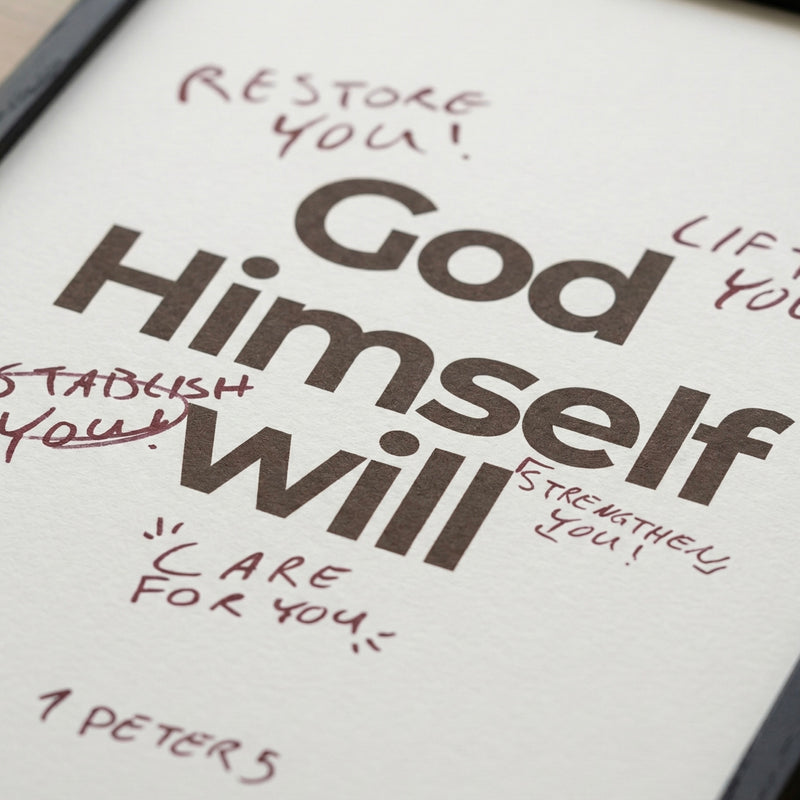 RESTORE
YOU!
God
LIFT
YOU
Himself
STABLISH
YOU!
Will
STRENGTHEN
YOU!
CARE
FOR YOU
1 PETER 5